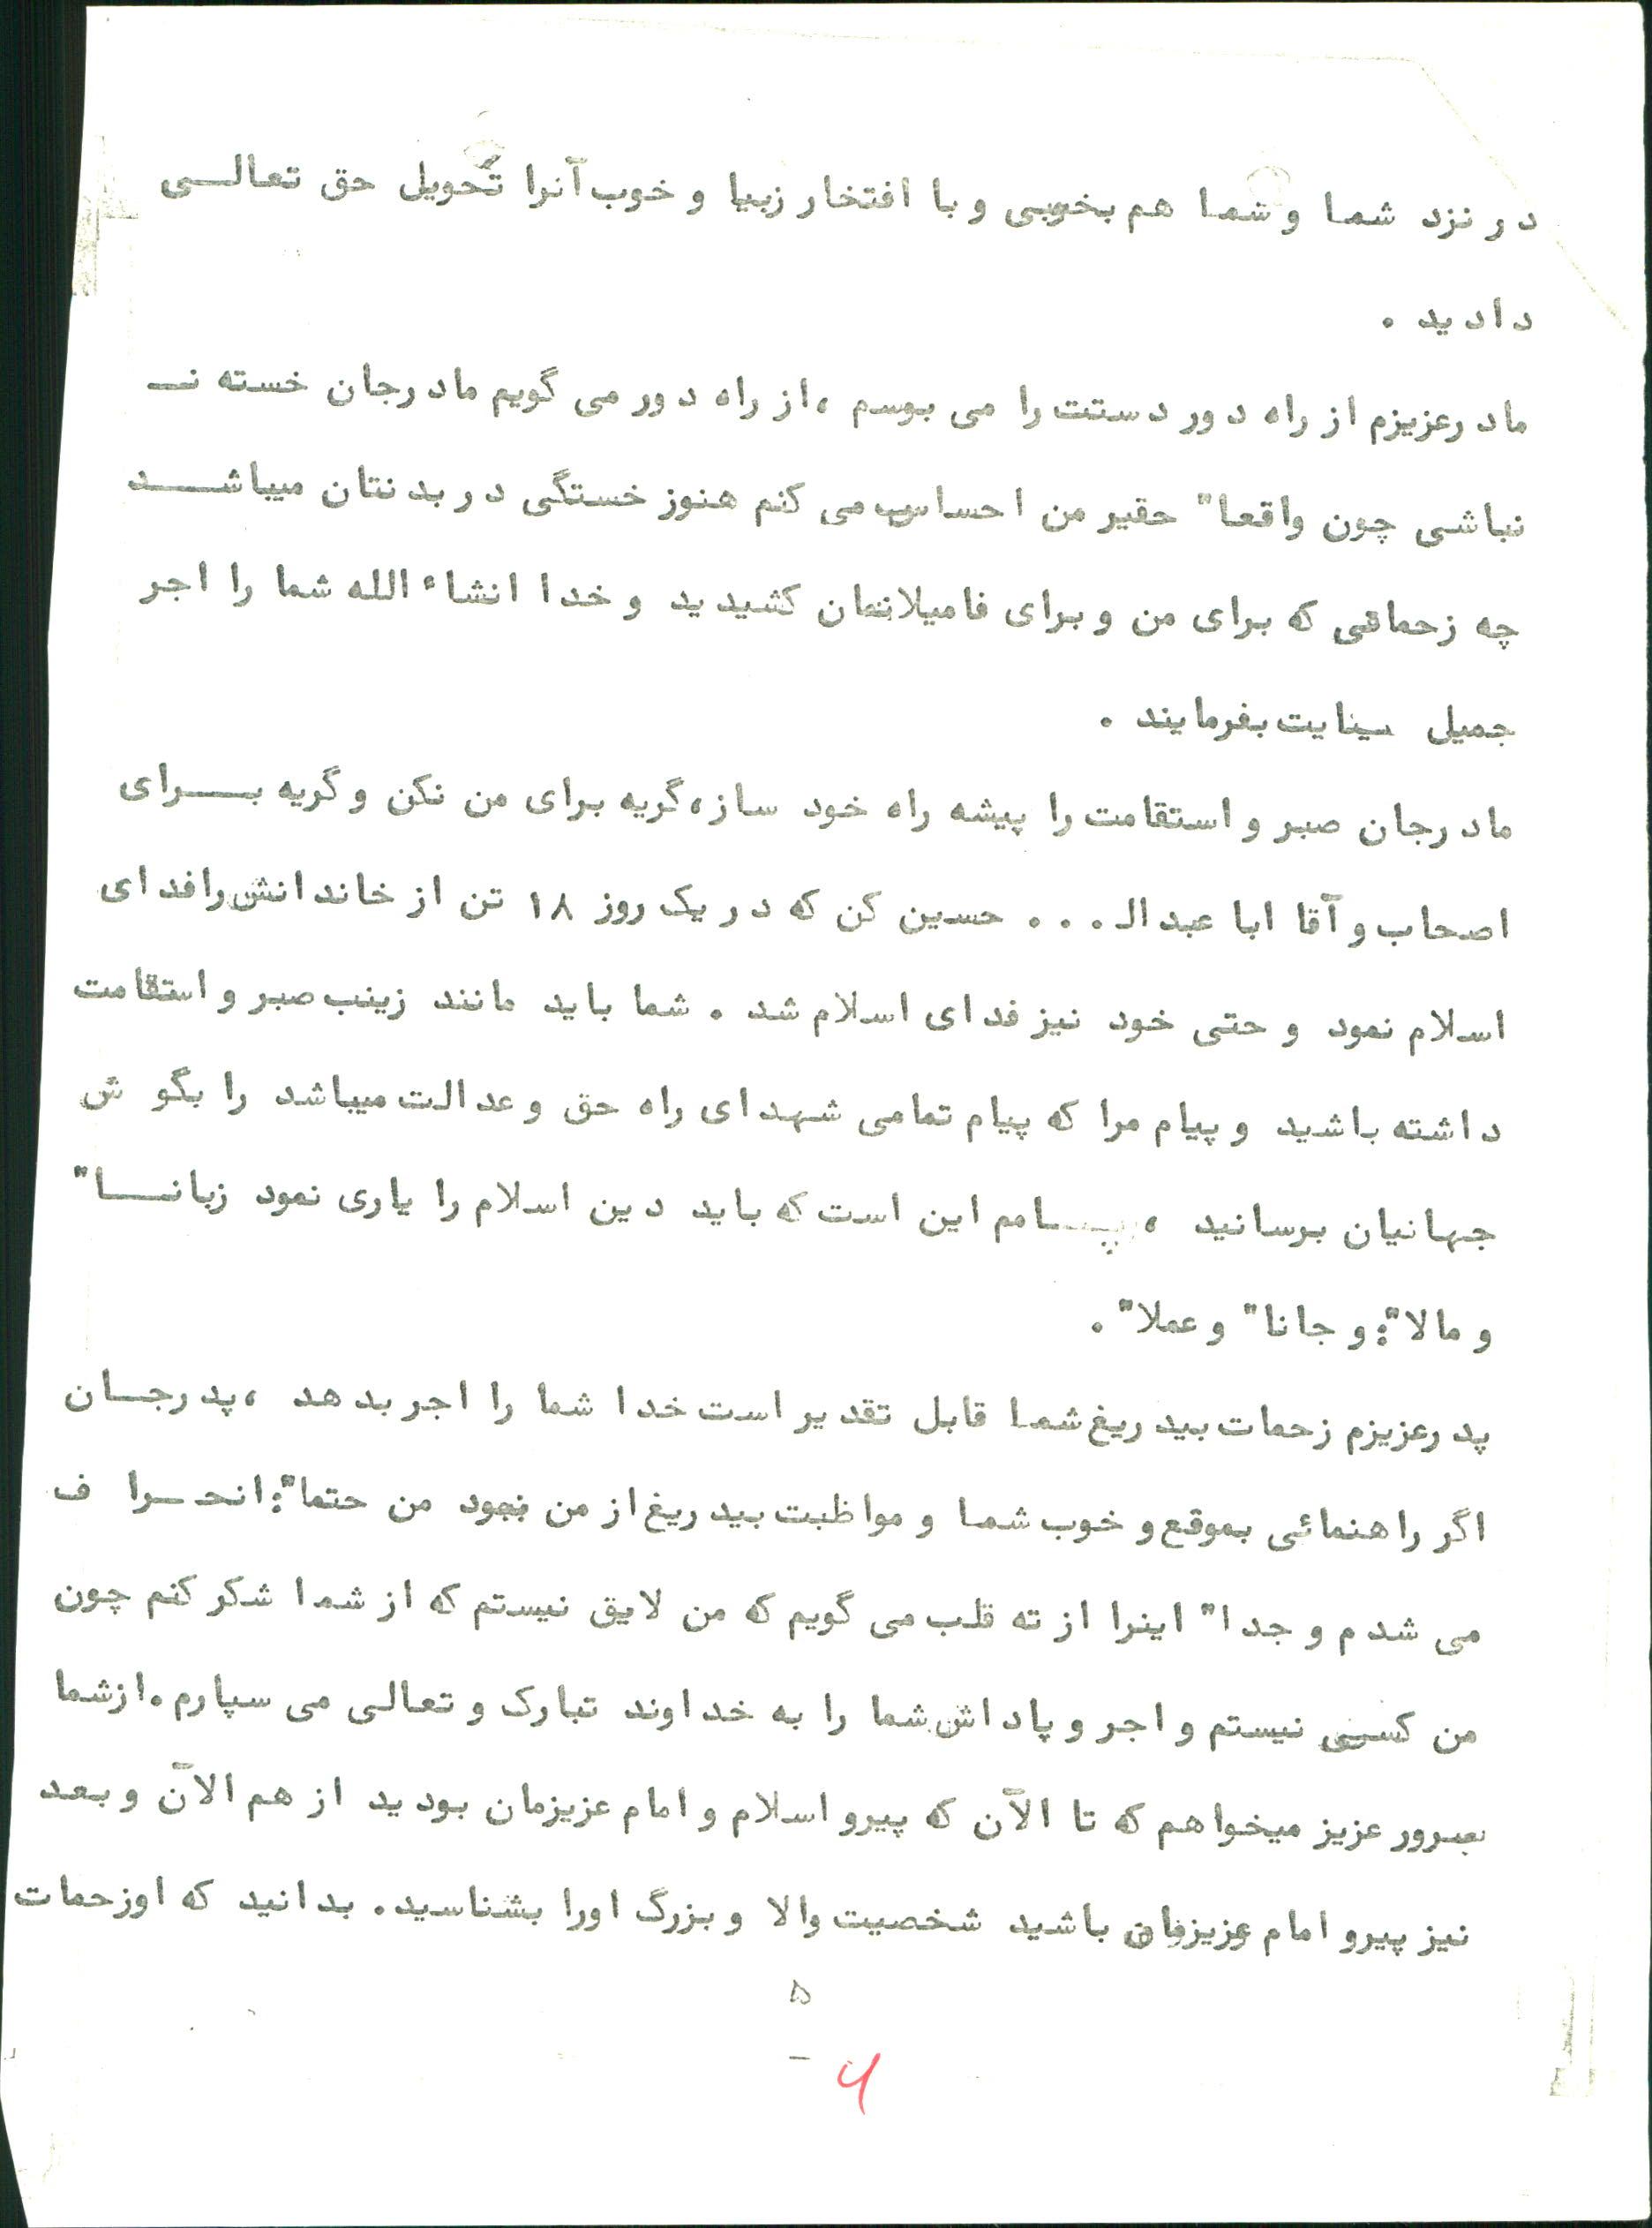 در نزد شما و شما هم بخوبی و با افتخار زیبا و خوب آنرا تحویل حق تعالی
دادید .
مادر عزیزم از راه دور دستت را می بوسم ، از راه دور می گویم مادر جان خسته نـ
نباشی چون واقعا" حقیر من احساس می کنم هنوز خستگی در بدنتان میباشد
چه زحماتی که برای من و برای فامیلانمان کشیدید و خدا انشاء الله شما را اجر
جمیل بفرمایند .
مادر جان صبر و استقامت را پیشه راه خود ساز، گریه برای من نکن و گریه برای
اصحاب و آقا ابا عبدال . . . حسین کن که در یک روز ۱۸ تن از خاندانش را فدای
اسلام نمود و حتی خود نیز فدای اسلام شد . شما باید مانند زینب صبر و استقامت
داشته باشید و پیام مرا که پیام تمامی شهدای راه حق و عدالت میباشد را بگو ش
جهانیان برسانید ، پیامم این است که باید دین اسلام را یاری نمود زبانا"
و مالا": و جانا" و عملا" .
پدر عزیزم زحمات بیدریغ شما قابل تقدیر است خدا شما را اجر بدهد ، پدر جان
اگر راهنمائی بموقع و خوب شما و مواظبت بیدریغ از من نبود من حتما": انحرا ف
می شدم و جدا" اینرا از ته قلب می گویم که من لایق نیستم که از شما شکر کنم چون
من کسی نیستم و اجر و پاداش شما را به خداوند تبارک و تعالی می سپارم . از شما
عزیز میخواهم که تا الآن که پیرو اسلام و امام عزیزمان بودید از هم الآن و بعد
نیز پیرو امام عزیزمان باشید شخصیت والا و بزرگ اورا بشناسید . بدانید که او زحمات
۵
–
۴